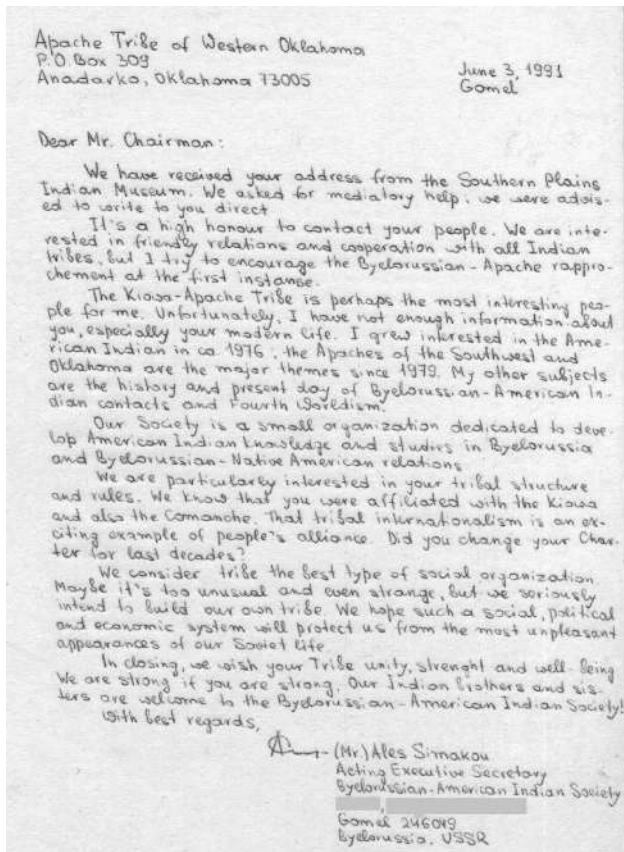 Apache Tribe of Western Oklahoma
P.O. Box 309
Anadarko, Oklahoma 73005
June 3, 1991
Gomel
Dear Mr. Chairman:
We have received your address from the Southern Plains
Indian Museum. We asked for mediatory help; we were advis-
ed to write to you direct.
It's a high honour to contact your people. We are inte-
rested in friendly relations and cooperation with all Indian
tribes, but I try to encourage the Byelorussian-Apache rappro-
chement at the first instance.
The Kiowa-Apache Tribe is perhaps the most interesting peo-
ple for me. Unfortunately, I have not enough information about
you, especially your modern life. I grew interested in the Ame-
rican Indian in ca 1976; the Apaches of the Southwest and
Oklahoma are the major themes since 1979. My other subjects
are the history and present day of Byelorussian-American In-
dian contacts and Fourth Worldism.
Our Society is a small organization dedicated to deve-
lop American Indian knowledge and studies in Byelorussia
and Byelorussian-Native American relations.
We are particularly interested in your tribal structure
and rules. We know that you were affiliated with the Kiowa
and also the Comanche. That tribal internationalism is an ex-
citing example of people's alliance. Did you change your Char-
ter for last decades?
We consider tribe the best type of social organization.
Maybe it's too unusual and even strange, but we seriously
intend to build our own tribe. We hope such a social, political
and economic system will protect us from the most unpleasant
appearances of our Soviet life.
In closing, we wish your Tribe unity, strenght and well-being
We are strong if you are strong. Our Indian brothers and sis-
ters are welcome to the Byelorussian-American Indian Society!
With best regards,
(Mr.) Ales Simakou
Acting Executive Secretary
Byelorussian-American Indian Society
Gomel 246049
Byelorussia, USSR